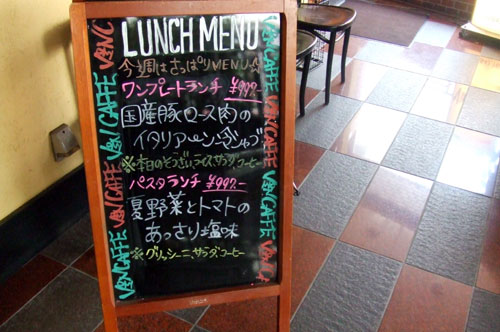 LUNCH MENU
今週はさっぱりMENU☆
ワンプレートランチ ¥999.-
国産豚ロース肉の
イタリアーンシャブ
※本日のそうざい、ライス、サラダ、コーヒー
パスタランチ ¥999.-
夏野菜とトマトの
あっさり塩味
※グリッシーニ、サラダ、コーヒー
VENI CAFFE
VENI CAFFE